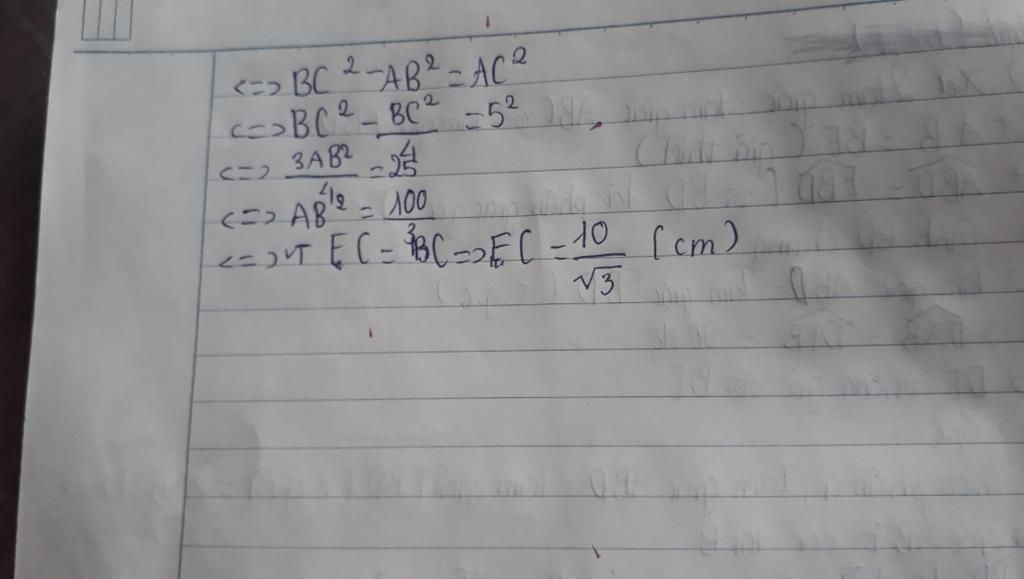 <=> BC² - AB² = AC²
<=> BC² - BC²/4 = 5²
<=> 3AB²/4 = 25
<=> AB² = 100/3
<=> √T EC = BC => EC = 10/√3 (cm)